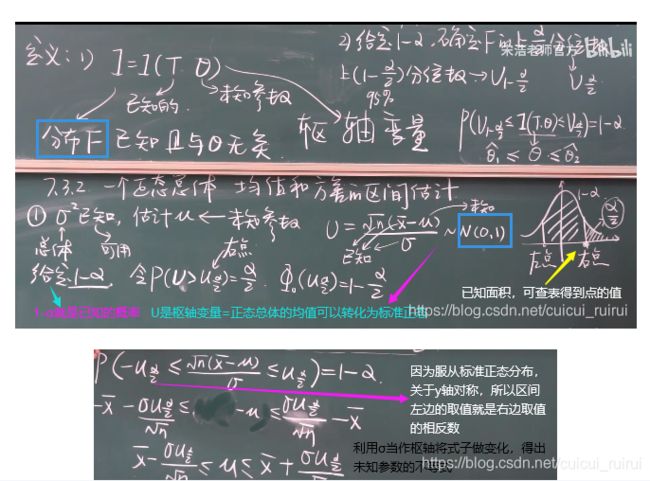 定义:1) I=I(T.θ)
已知的
未知参数
分布F 已知且与θ无关.
枢轴变量
2)给定1-α,确定F的上α/2分位数
宋浩老师官方 bilibili
上(1-α/2)分位数→U1-α/2 Uα/2
95%
P(U1-α/2≤I(T.θ)≤Uα/2)=1-α
θ̂1≤θ≤θ̂2
7.3.2. 一个正态总体 均值和方差的区间估计
① σ²已知, 估计μ←未知参数
总体
可用
U=√n(x̄-μ)/σ ~N(0,1)
未知
已知
1-α
α/2
左点 右点
右点
给定1-α 令P(U>uα/2)=α/2. Φ0(uα/2)=1-α/2
已知面积,可查表得到点的值
1-α就是已知的概率 U是枢轴变量=正态总体的均值可以转化为标准正态
https://blog.csdn.net/cuicui_ruirui
P(-uα/2≤√n(x̄-μ)/σ≤uα/2)=1-α.
-x̄-σuα/2/√n≤-μ≤σuα/2/√n-x̄
x̄-σuα/2/√n≤μ≤x̄+σuα/2/√n
因为服从标准正态分布,
关于y轴对称,所以区间
左边的取值就是右边取值
的相反数
利用σ当作枢轴将式子做变化,得出
未知参数的不等式
https://blog.csdn.net/cuicui_ruirui